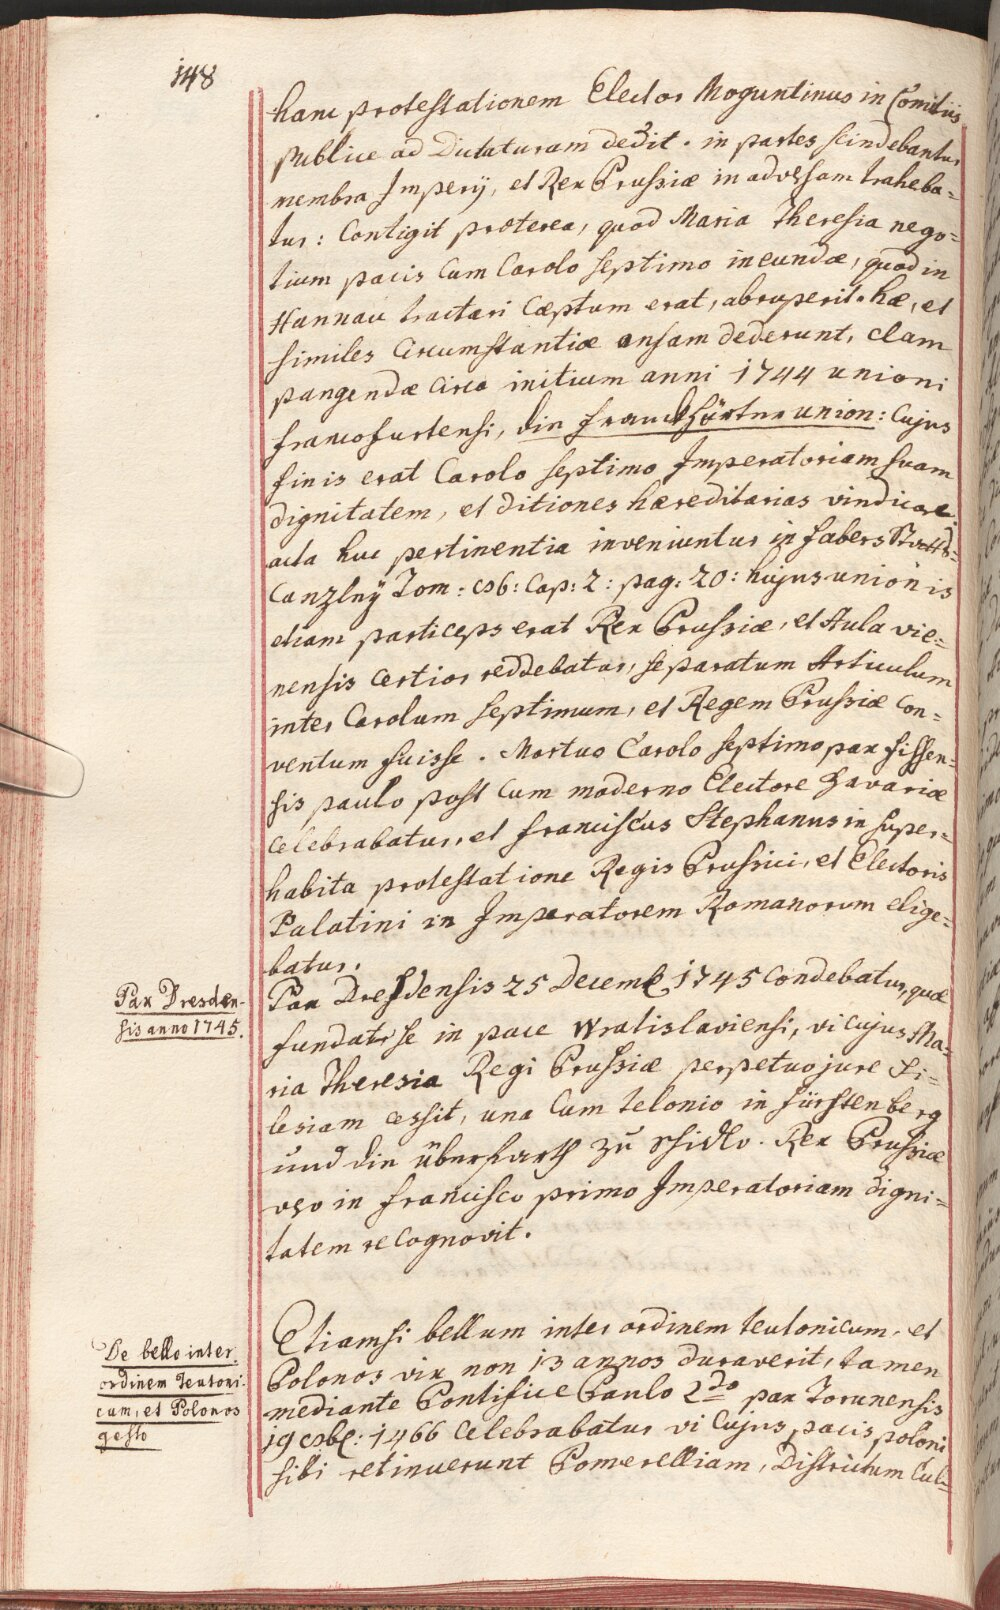 148
hanc protestationem Elector Moguntinus in Comitiis
publice ad Dictaturam dedit. in partes scindebantur
membra Imperÿ, et Rex Prussiæ in adversam traheba=
tur: Contigit præterea, quod Maria Theresia nego=
tium pacis cum Carolo septimo ineundæ, quod in
Hannau tractari cœptum erat, abruperit. hæ, et
similes circumstantiæ ansam dederunt, clam
pangendæ circa initium anni 1744 unioni
francofurtensi, die franckfürter union: cujus
finis erat Carolo septimo Imperatoriam suam
dignitatem, et ditiones hæreditarias vindicare.
acta huc pertinentia inveniuntur in fabers Staats=
Canzleÿ Tom: 86: Cap: 2: pag: 20: hujus unionis
etiam particeps erat Rex Prussiæ, et Aula vie=
nensis certior reddebatur, separatum Articulum
inter Carolum septimum, et Regem Prussiæ con=
ventum fuisse. Mortuo Carolo septimo pax fissen=
sis paulo post cum moderno Electore bavariæ
celebrabatur, et franciscus Stephanus in super=
habita protestatione Regis Prussici, et Electoris
Palatini in Imperatorem Romanorum elige=
batur.
Pax Dresden-
sis anno 1745.
Pax Dresdensis 25 Decemb 1745 condebatur, quæ
fundat se in pace Wratislaviensi, vi cujus Ma=
ria Theresia Regi Prussiæ perpetuo jure Si=
lesiam cessit, una cum telonio in fürstenberg
und die überfarth zu schidlo. Rex Prussiæ
vero in francisco primo Imperatoriam digni=
tatem recognovit.
De bello inter
ordinem Teutoni-
cum, et Polonos
gesto
Etiamsi bellum inter ordinem teutonicum, et
Polonos vix non 13 annos duraverit, tamen
mediante Pontifice Paulo 2do pax Torunensis
19 8b: 1466 celebrabatur vi cujus pacis poloni
sibi retinuerunt Pomerelliam, Districtum Cul=